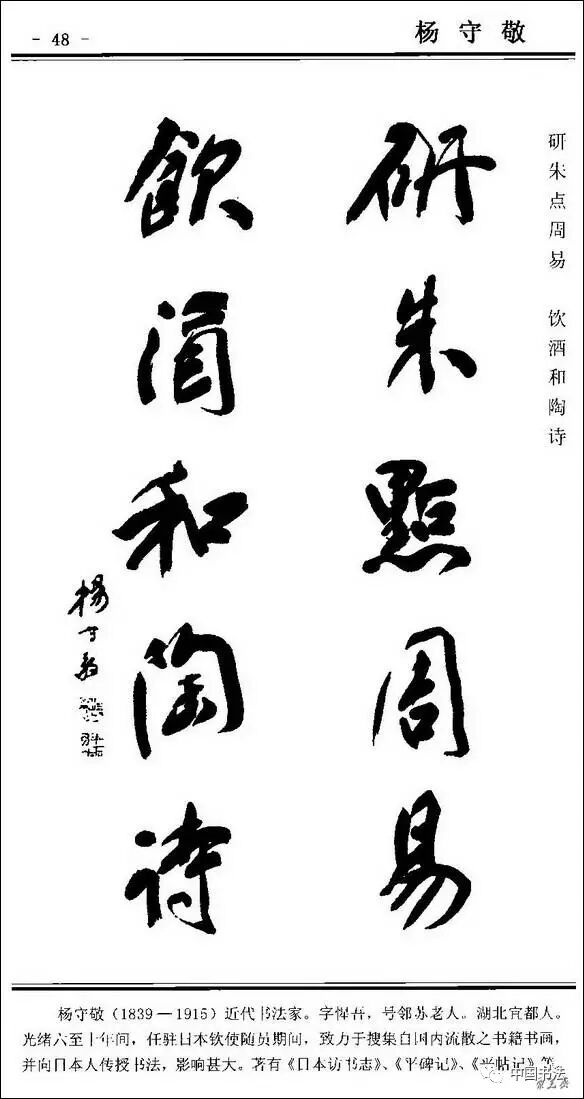 - 48 -
杨守敬
研朱点周易 饮酒和陶诗
研朱點周易
飲酒和陶詩
楊守敬
杨守敬(1839—1915)近代书法家。字惺吾,号邻苏老人。湖北宜都人。
光绪六至十年间,任驻日本钦使随员期间,致力于搜集自国内流散之书籍书画,
并向日本人传授书法,影响甚大。著有《日本访书志》、《平碑记》、《平帖记》等。
中国书法